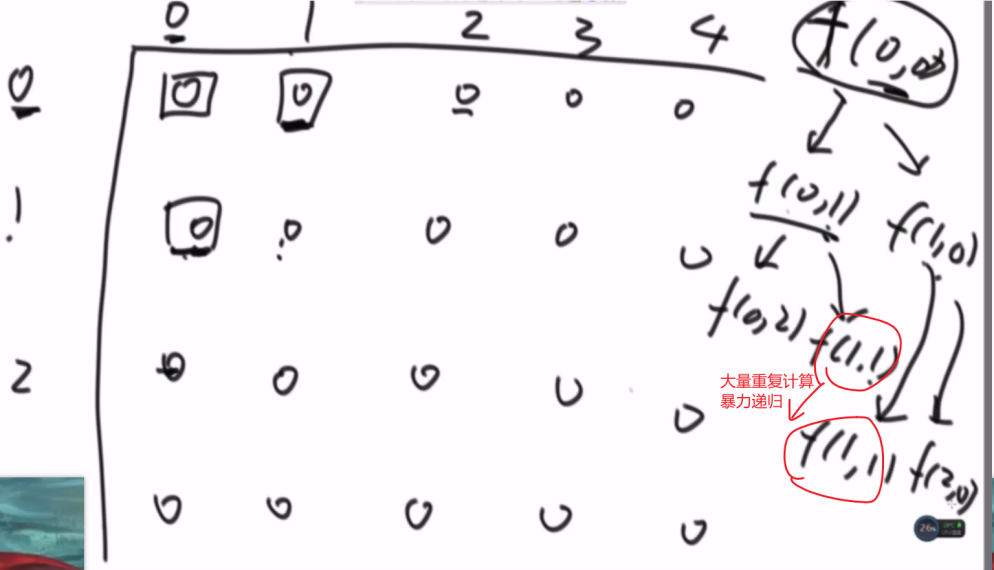 0 1 2 3 4
0 0 0 0 0 0
1 0 0 0 0 0
2 0 0 0 0 0
0 0 0 0 0
f(0,0)
f(0,1) f(1,0)
f(0,2) f(1,1)
大量重复计算
暴力递归
f(1,1) f(2,0)
26%